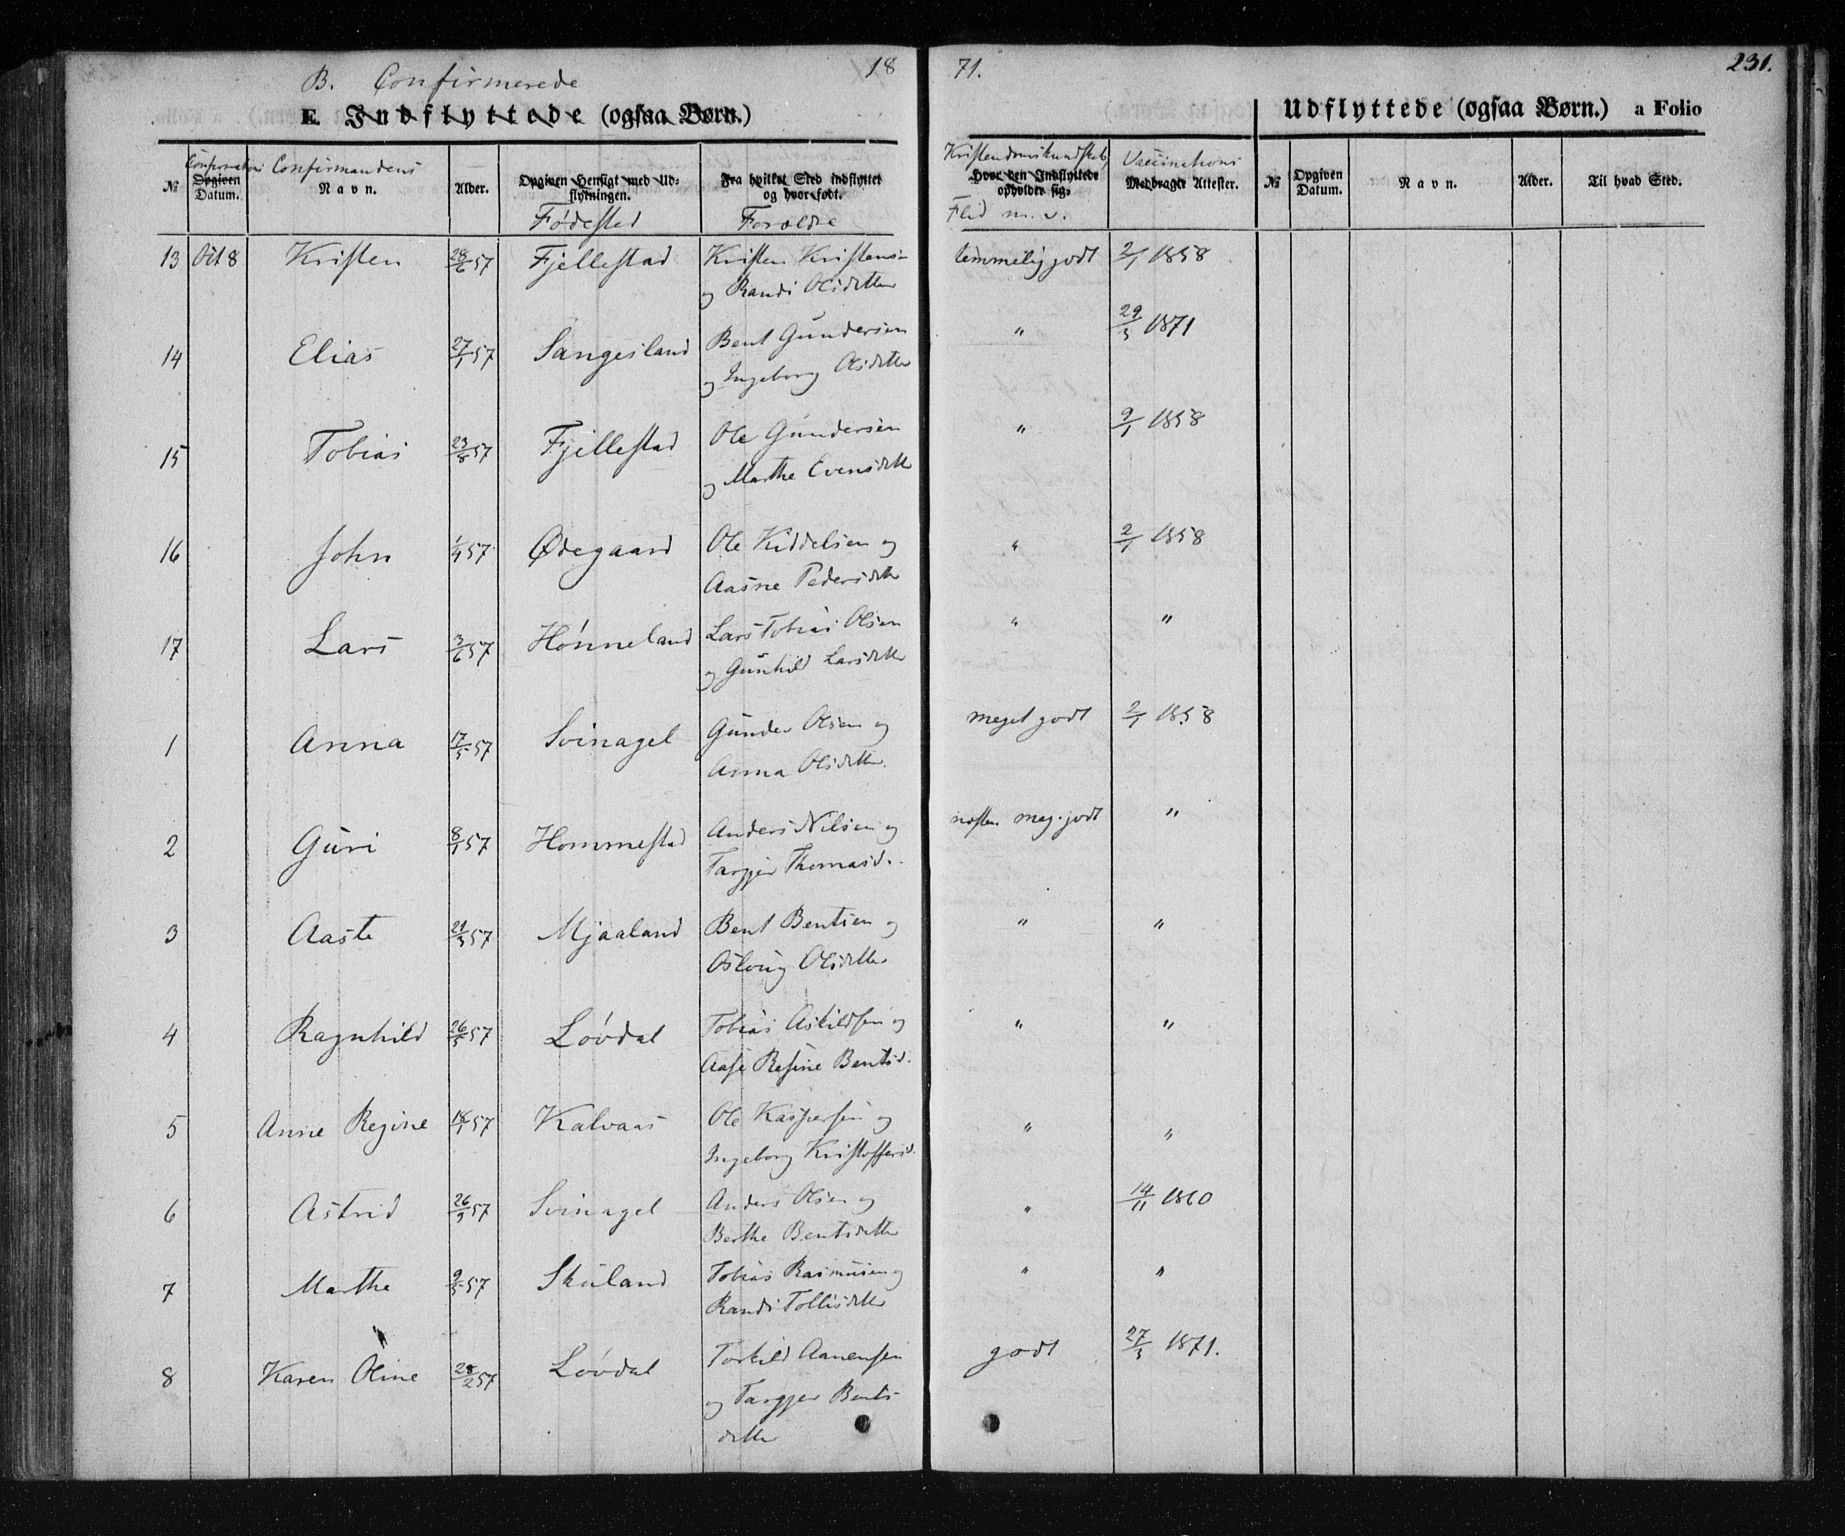 B. Confirmerede
18 71.
231.
E. Indflyttede (ogsaa Børn.)
Udflyttede (ogsaa Børn.) a Folio
№ Opgiven Datum. Navn. Alder. Opgiven Hensigt med Udflytningen. Fra hvilket Sted indflyttet og hvor født. Hvor den Indflyttede opholder sig. Medbragte Attester. № Opgiven Datum. Navn. Alder. Til hvad Sted.
Confirmations Confirmandens Fødested Forældre Kristendomskundskab Flid m. v. Vaccinations
13 Oct 8 Kristen 28/6 57 Fjellestad Kristen Kristensen temmelig godt 2/1 1858
og Randi Olsdatter
14 Elias 27/1 57 Sangesland Bent Gundersen " 29/3 1871
og Ingeborg Olsdatter
15 Tobias 23/8 57 Fjellestad Ole Gundersen " 9/1 1858
og Marthe Evensdatter
16 John 1/4 57 Ødegaard Ole Kiddelsen og " 2/1 1858
Aasne Pedersdatter
17 Lars 3/6 57 Hønneland Lars Tobias Olsen " "
og Gunhild Larsdatter
1 Anna 17/5 57 Svinagel Gunder Olsen og meget godt 2/1 1858
Anna Olsdatter
2 Guri 8/1 57 Hommestad Anders Nilsen og næsten meg. godt "
Targjer Thomasd.
3 Aaste 21/3 57 Mjaaland Bent Bentsen og " "
Oslaug Olsdatter
4 Ragnhild 26/5 57 Løvdal Tobias Askildsen og " "
Aase Resine Bentsd.
5 Anne Regine 18/1 57 Kalvaas Ole Kaspersen og " "
Ingeborg Kristoffersd.
6 Astrid 26/3 57 Svinagel Anders Olsen og " 14/11 1860
Berthe Bentsdatter
7 Marthe 9/5 57 Skuland Tobias Rasmusen og " "
Randi Tollisdatter
8 Karen Oline 28/2 57 Løvdal Torkild Aanensen godt 27/3 1871.
og Targjer Bents-
datter